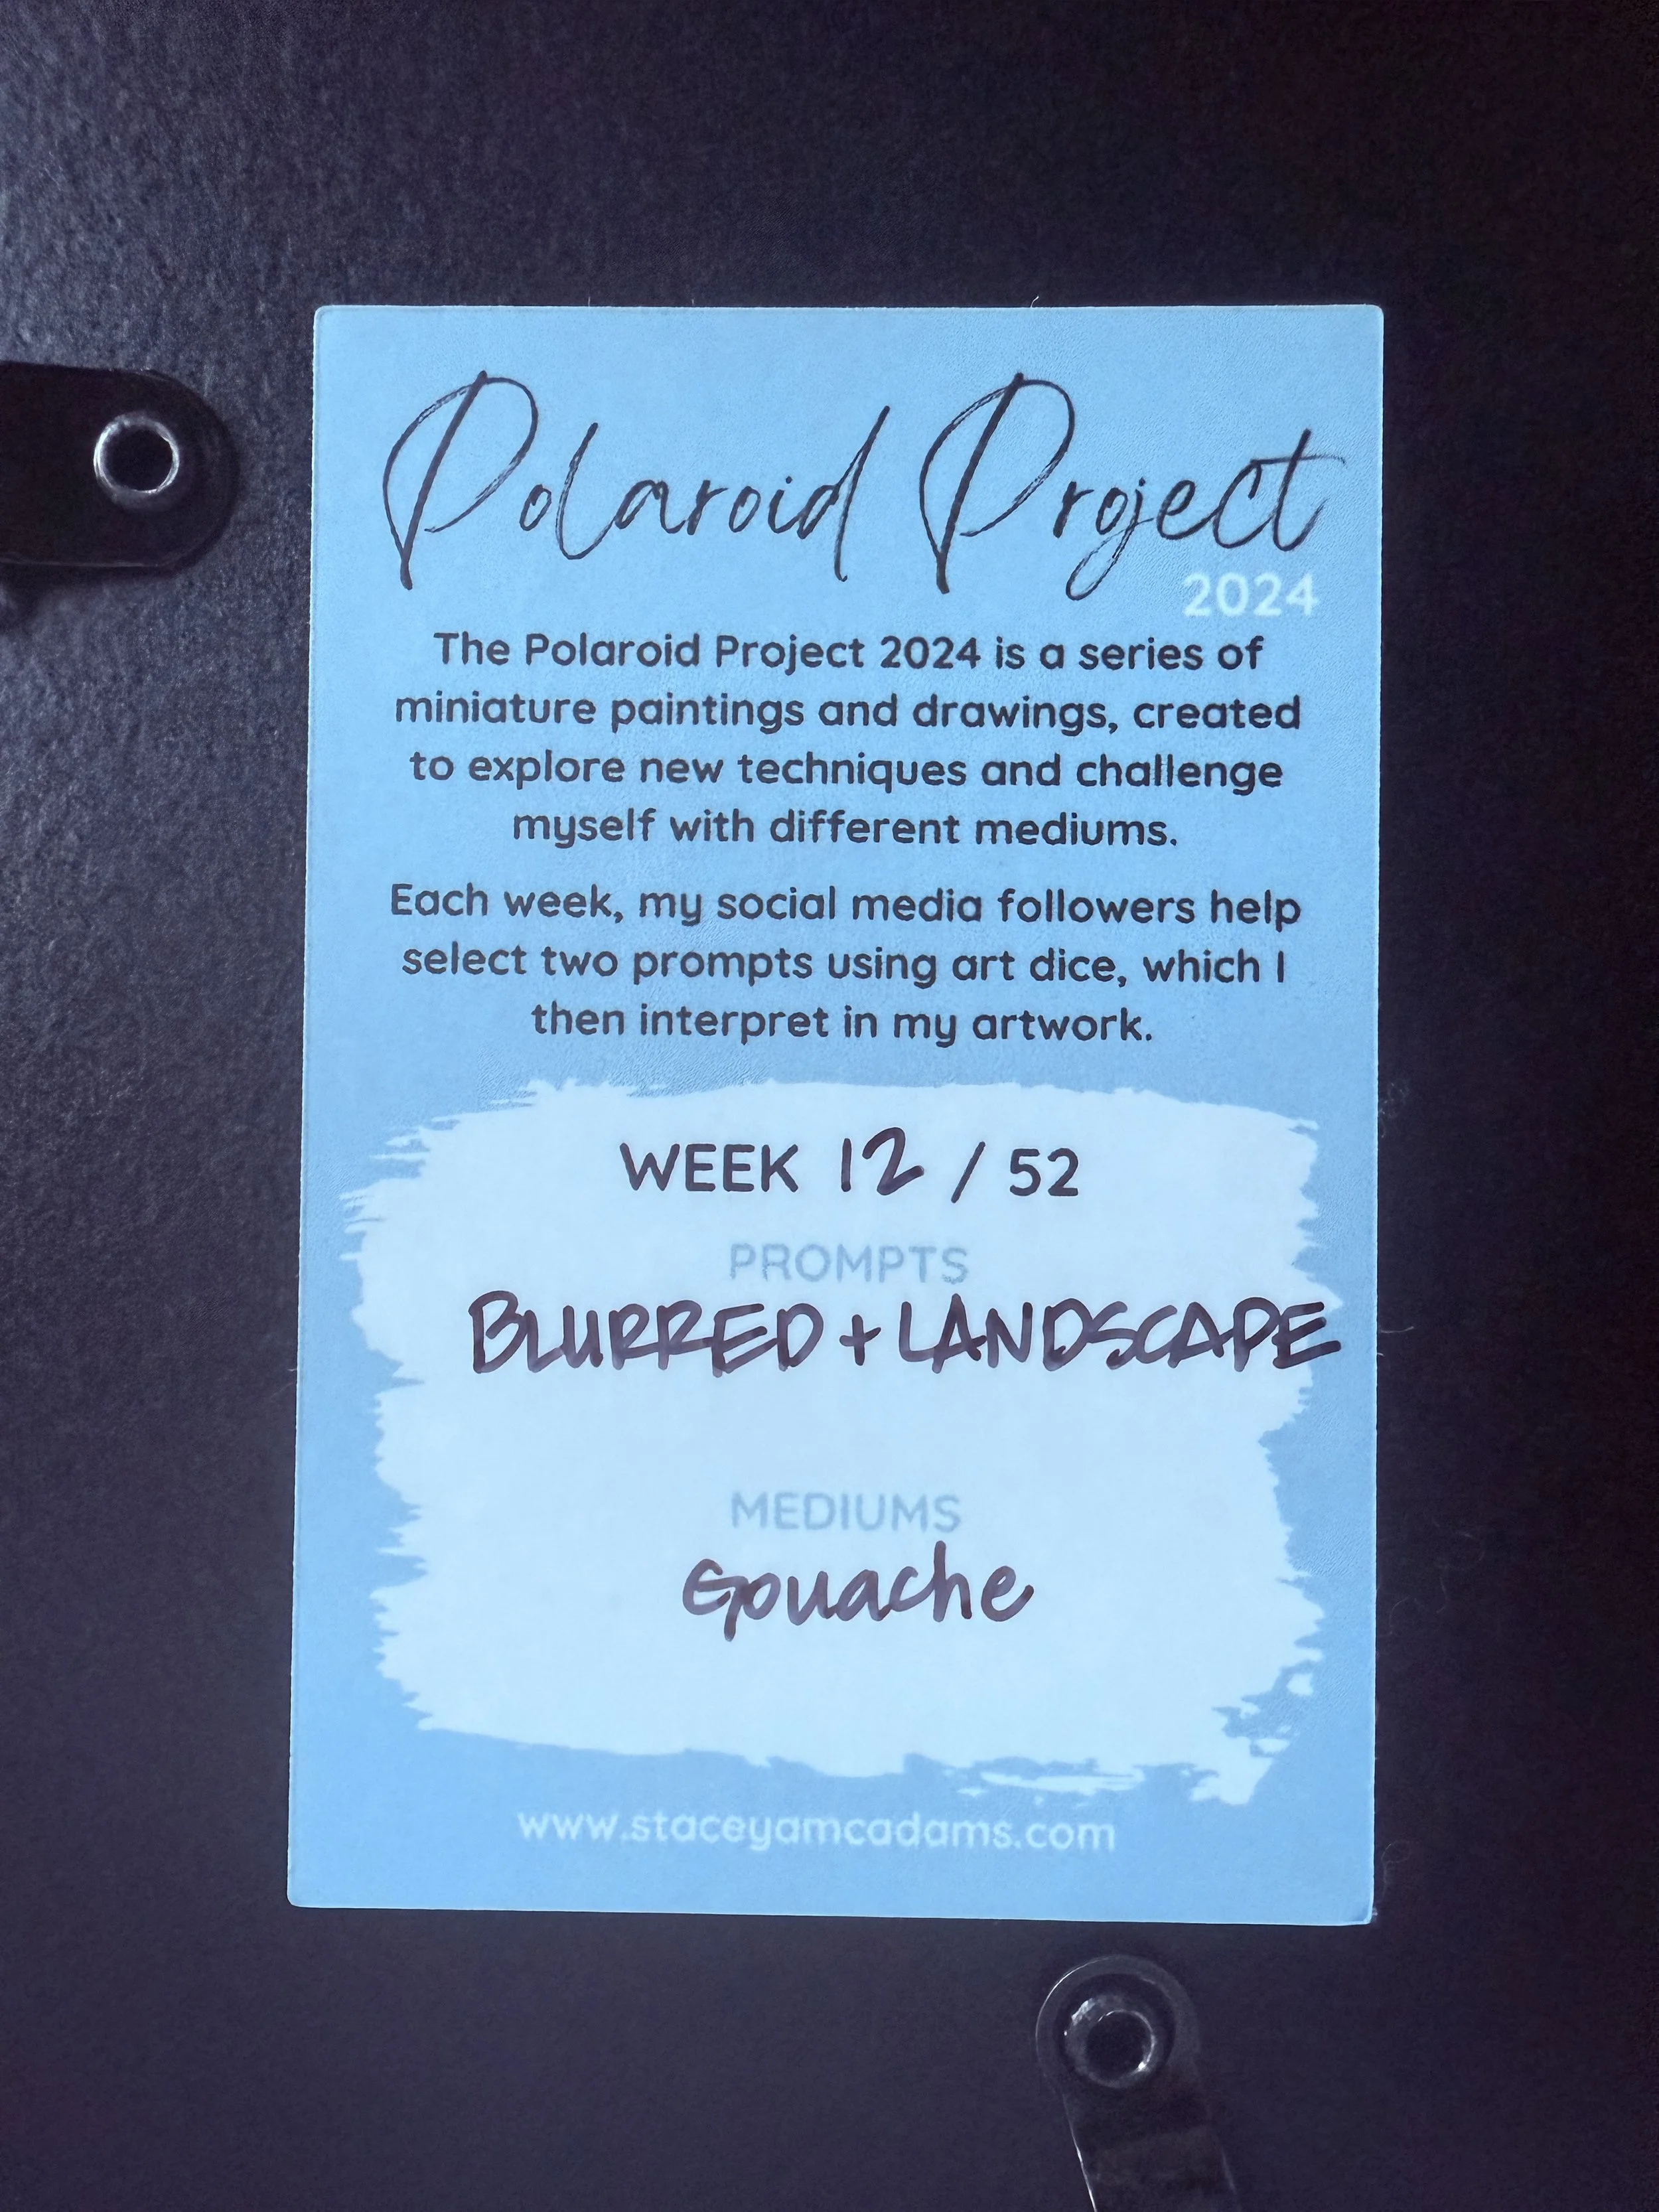 Polaroid Project
2024
The Polaroid Project 2024 is a series of
miniature paintings and drawings, created
to explore new techniques and challenge
myself with different mediums.
Each week, my social media followers help
select two prompts using art dice, which I
then interpret in my artwork.
WEEK 12 / 52
PROMPTS
BLURRED + LANDSCAPE
MEDIUMS
Gouache
www.staceyamcadams.com